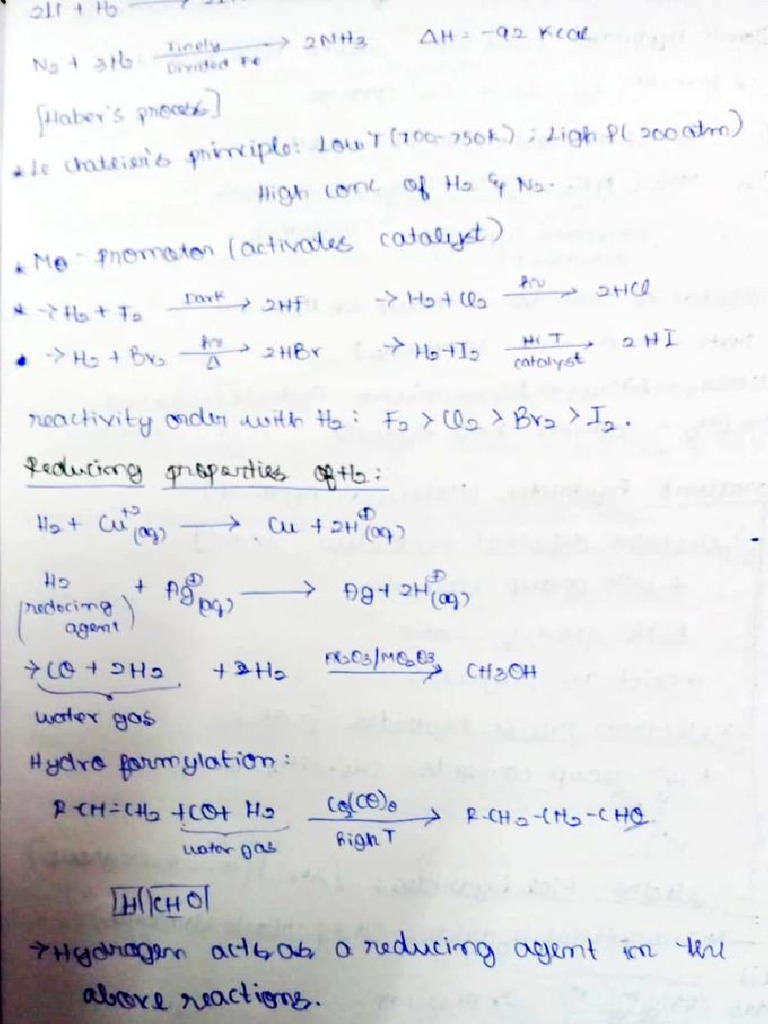 2H + H₂ →
N₂ + 3H₂ Finely Divided Fe → 2NH₃ ΔH = -92 Kcal
[Haber's process]
* Le chatelier's principle: Low T (700-750K) ; High P (200 atm)
High conc of H₂ & N₂.
* Mo - promotor (activates catalyst)
* → H₂ + F₂ Dark → 2HF → H₂ + Cl₂ hν → 2HCl
• → H₂ + Br₂ hν Δ → 2HBr → H₂+I₂ High T catalyst → 2HI
reactivity order with H₂: F₂ > Cl₂ > Br₂ > I₂.
Reducing properties of H₂:
H₂ + Cu⁺²(aq) → Cu + 2H⊕(aq)
H₂ + Ag⊕(aq) → Ag + 2H⊕(aq)
(reducing agent)
→ CO + 2H₂ + 2H₂ → CH3OH
water gas
Hydro formylation:
R-CH=CH₂ + CO + H₂ Co₂(CO)₈ High T → R-CH₂-CH₂-CHO
water gas
[H][CHO]
→ Hydrogen acts as a reducing agent in the
above reactions.